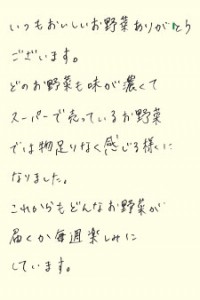 いつもおいしいお野菜ありがとう
ございます。
どのお野菜も味が濃くて
スーパーで売っているお野菜
では物足りなく感じる様に
なりました。
これからもどんなお野菜が
届くか毎週楽しみに
しています。